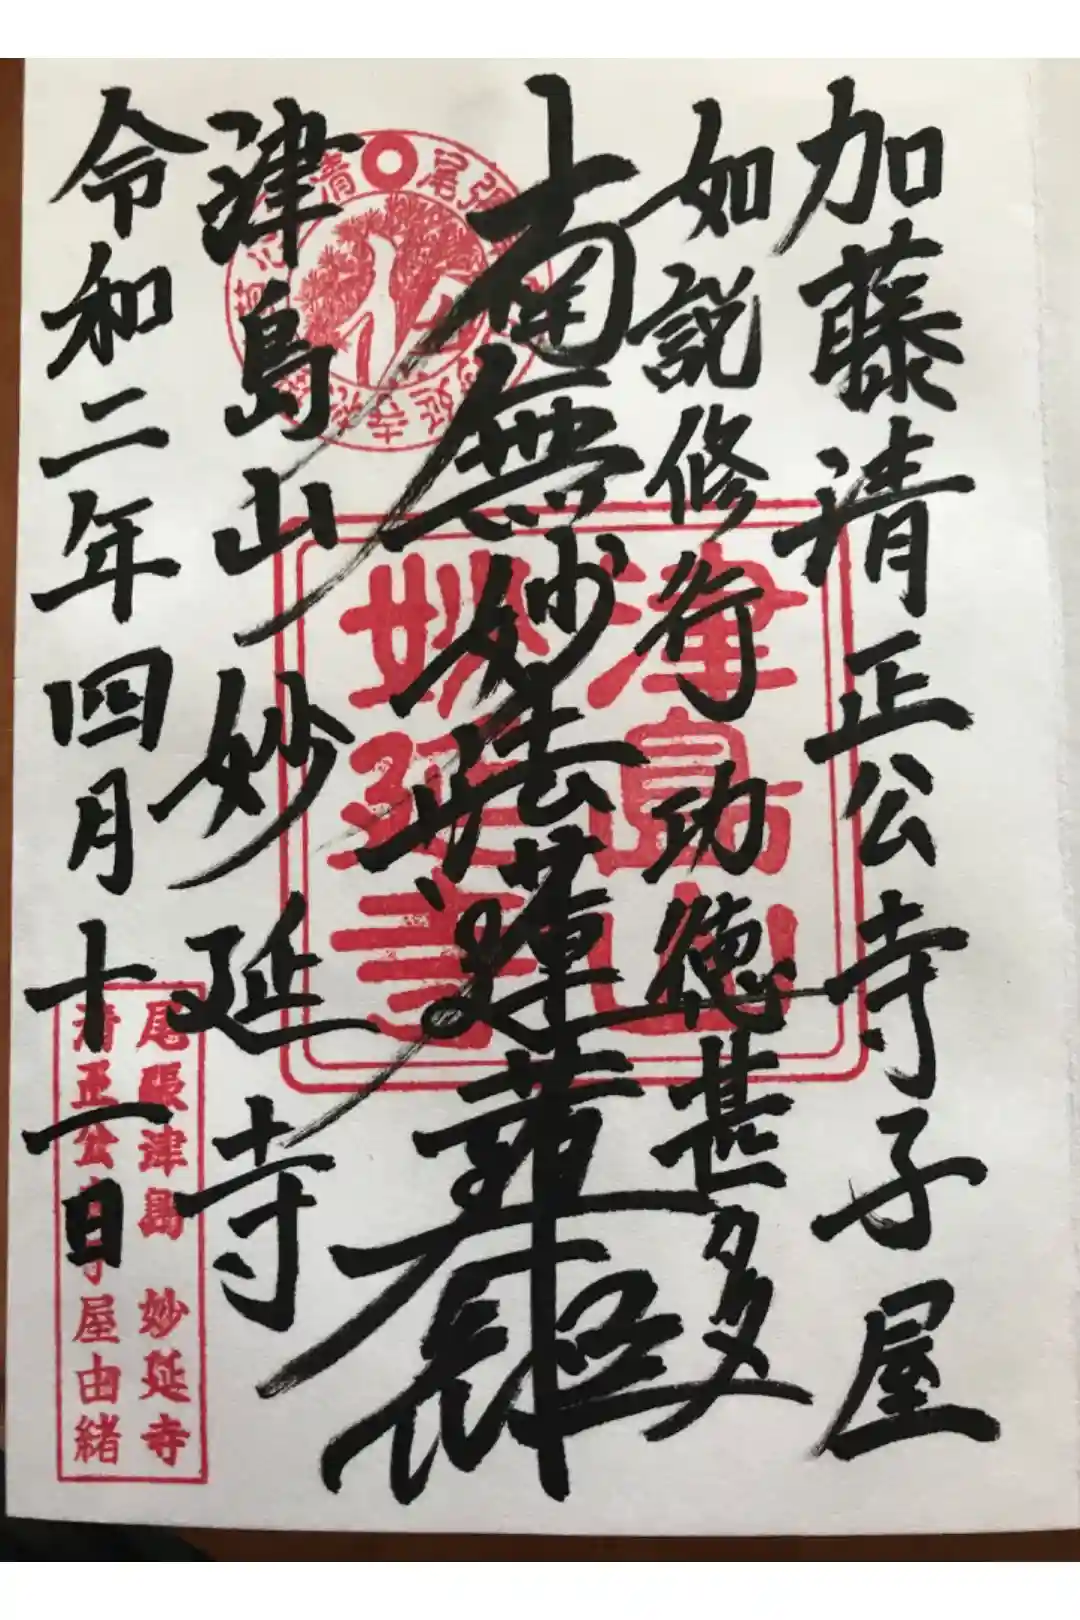 加藤清正公寺子屋
如説修行功徳甚多
南無妙法蓮華経
津島山妙延寺
令和二年四月十一日
津島山
妙延寺
尾張津島 妙延寺
清正公寺子屋由緒